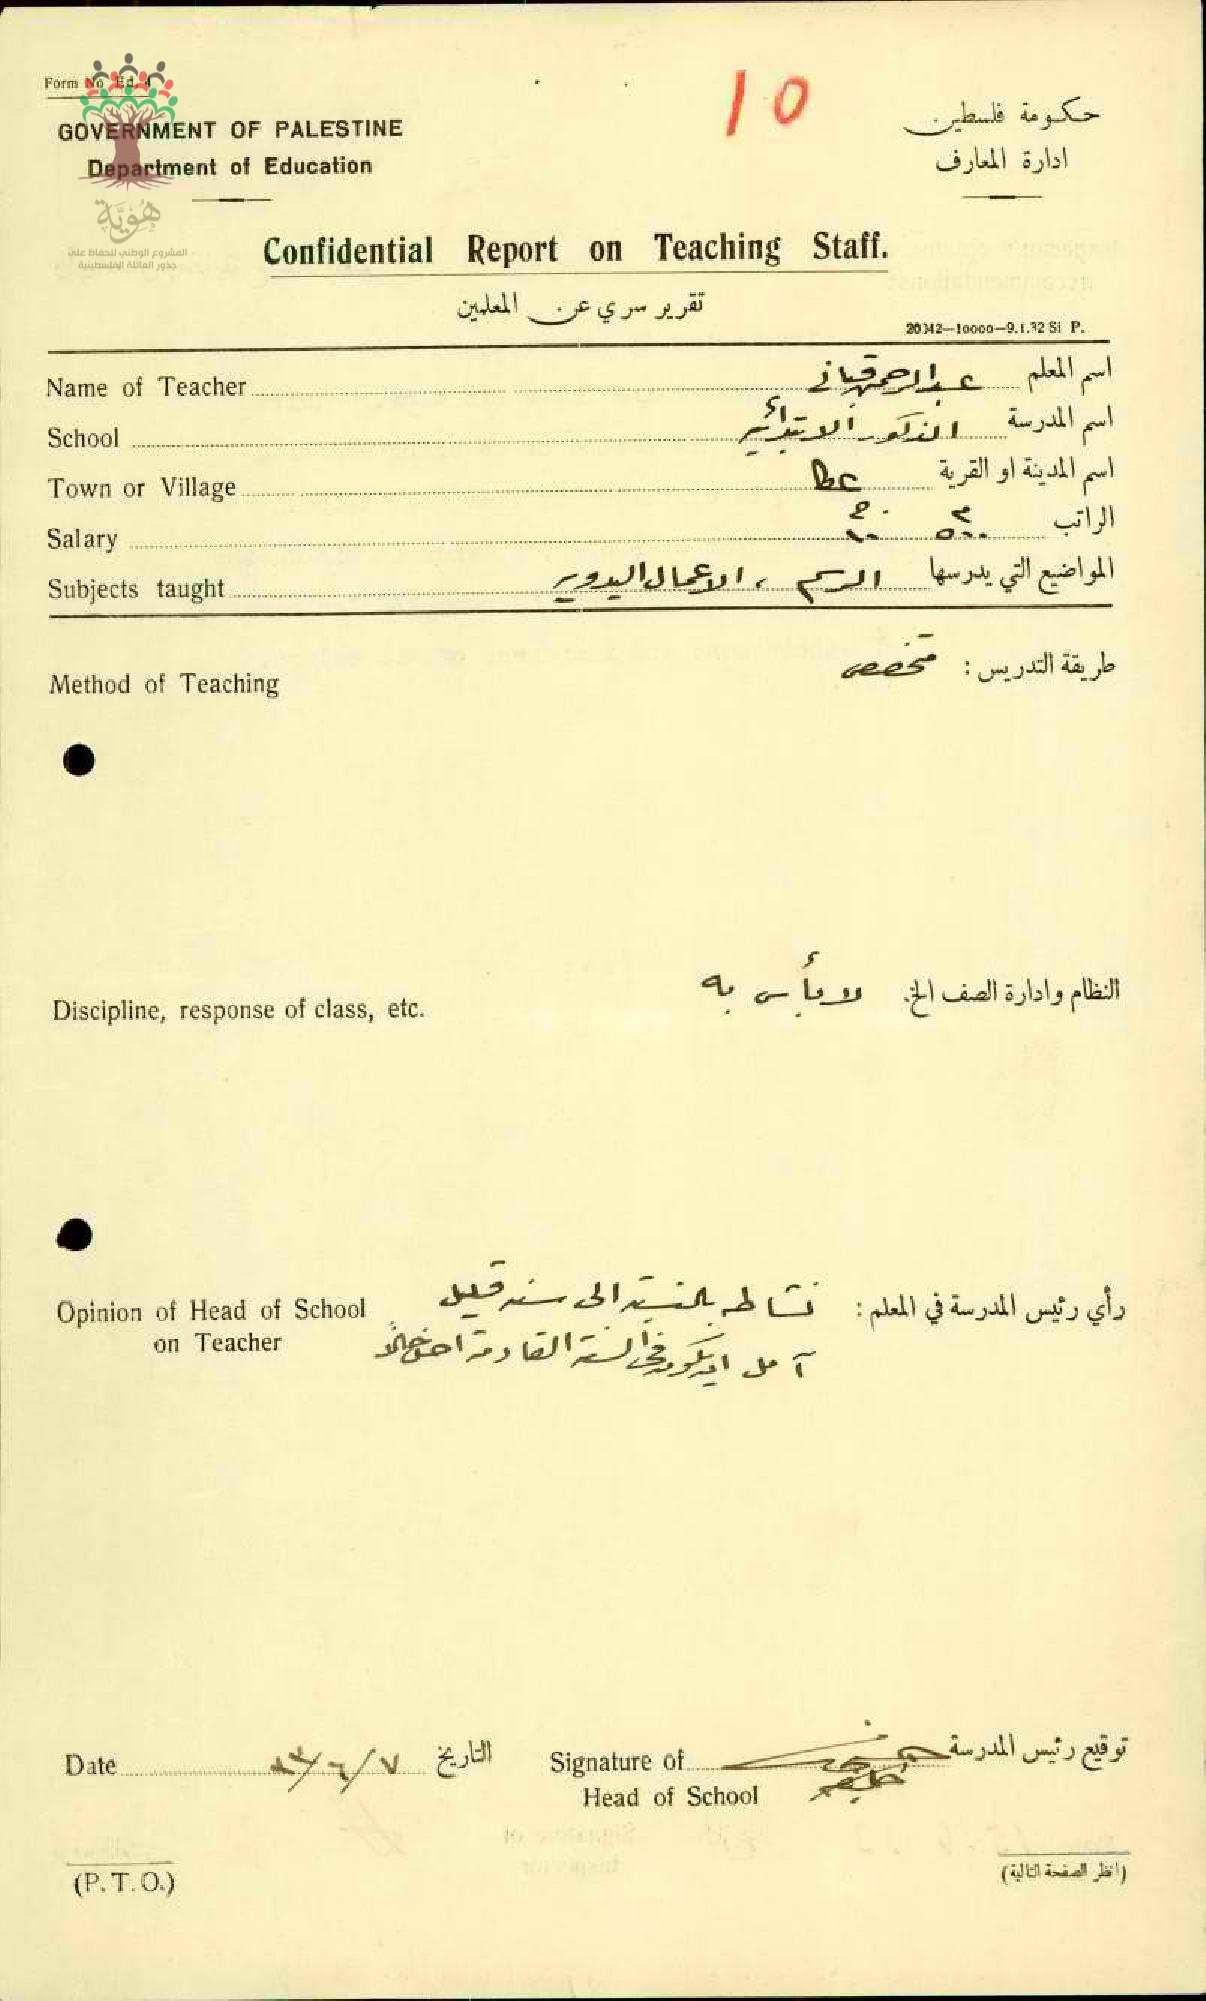 Form No Ed. 4
10
GOVERNMENT OF PALESTINE
Department of Education
حكومة فلسطين
ادارة المعارف
هُوِيَّة
المشروع الوطني للحفاظ على
جذور العائلة الفلسطينية
Confidential Report on Teaching Staff.
تقرير سري عن المعلمين
20342—10000—9.1.32 Si P.
Name of Teacher عبد الرحمن قباني اسم المعلم
School الذكور الابتدائية اسم المدرسة
Town or Village عكا اسم المدينة او القرية
Salary الراتب
Subjects taught الرسم ، الاعمال اليدوية المواضيع التي يدرسها
Method of Teaching
طريقة التدريس : متخصص
Discipline, response of class, etc.
النظام وادارة الصف الخ. لا بأس به
Opinion of Head of School
on Teacher
رأي رئيس المدرسة في المعلم : نشاطه بالنسبة الى سنه قليل
آمل ان يكون في السنة القادمة احسن حالاً
Date ٧/٦/٣٢ التاريخ
Signature of توقيع رئيس المدرسة
Head of School
(P.T.O.)
(انظر الصفحة التالية)